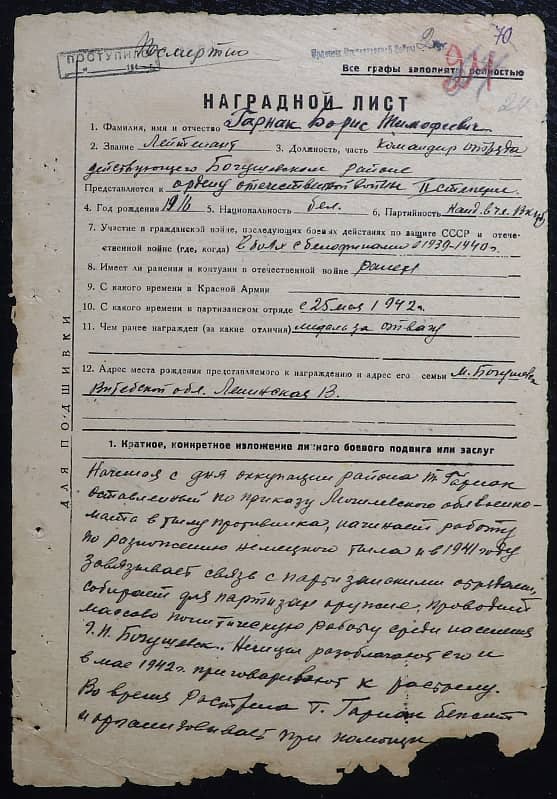 ПОСТУПИЛ
Посмертно
70
Все графы заполнять полностью
НАГРАДНОЙ ЛИСТ
1. Фамилия, имя и отчество Гарнак Борис Тимофеевич
2. Звание Лейтенант 3. Должность, часть Командир отряда
действующего Богушевском районе
Представляется к ордену отечественной войны II степени.
4. Год рождения 1916 5. Национальность бел. 6. Партийность Канд. в чл. ВКП(б)
7. Участие в гражданской войне, последующих боевых действиях по защите СССР и отече-
ственной войне (где, когда) в боях с белофинами в 1939-1940 г.
8. Имеет ли ранения и контузии в отечественной войне ранен
9. С какого времени в Красной Армии
10. С какого времени в партизанском отряде с 25 мая 1942 г.
11. Чем ранее награжден (за какие отличия) медаль за отвагу
12. Адрес места рождения представляемого к награждению и адрес его семьи м. Богушевск
Витебской обл. Ленинская 13.
ДЛЯ ПОДШИВКИ
1. Краткое, конкретное изложение личного боевого подвига или заслуг
Начиная с дня оккупации района т. Гарнак
оставленный по приказу Могилевского облвоенко-
мата в тылу противника, начинает работу
по разложению немецкого тыла и в 1941 году
завязывает связь с партизанскими отрядами,
собирает для партизан оружие, проводит
массово политическую работу среди населения
Богушевск. Немцы разоблачают его и
в мае 1942 г. приговаривают к расстрелу.
Во время расстрела т. Гарнак бежит
и организовывает при помощи